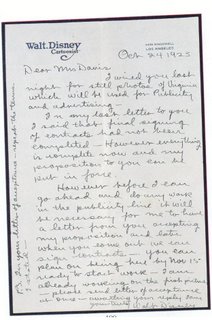 Walt. Disney
Cartoonist
4406 KINGSWELL
LOS ANGELES
Oct 24 1923
Dear Mrs Davis
I wired you last
night for still photos of Virginia
which will be used for Publicity
and advertising -
In my last letter to you
I said that final signing
of contracts had not been
completed - However everything
is complete now and my
proposition to you can be
put in force.
However before I can
go ahead and do any work
in the publicity line it will
be necessary for me to have
a letter from you accepting
my proposition and later
when you come out we can
sign contracts - you can
plan on being here by Nov 15
ready to start work - I am
already working on the first picture
please send letter of acceptance
at once - awaiting your reply
Walt Disney